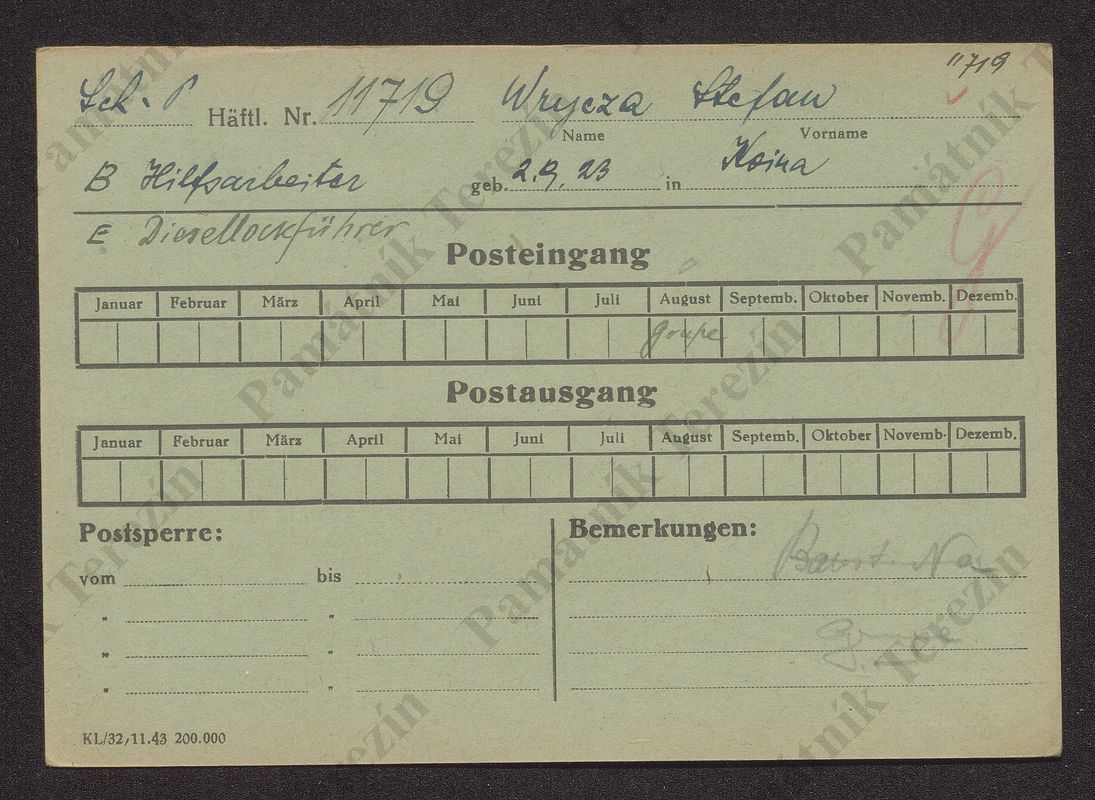 11719
Sch. P Häftl. Nr. 11719 Wrycza Stefan
Name Vorname
B Hilfsarbeiter geb. 2.9.23 in Koina
E Diesellockführer
Posteingang
Januar Februar März April Mai Juni Juli August Septemb. Oktober Novemb. Dezemb.
Postausgang
Januar Februar März April Mai Juni Juli August Septemb. Oktober Novemb. Dezemb.
Postsperre: Bemerkungen:
vom bis
" "
" "
" "
KL/32, 11.43 200.000
Památník Terezín